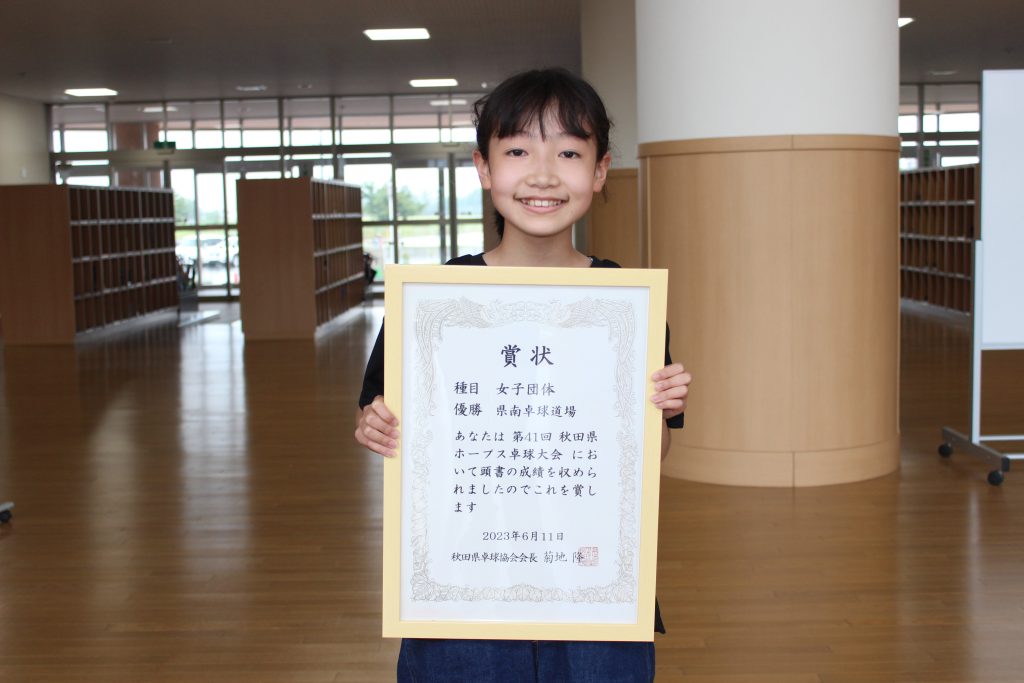 賞状
種目 女子団体
優勝 県南卓球道場
あなたは 第41回 秋田県
ホープス卓球大会 にお
いて頭書の成績を収めら
れましたのでこれを賞し
ます
2023年6月11日
秋田県卓球協会会長 菊地 隆